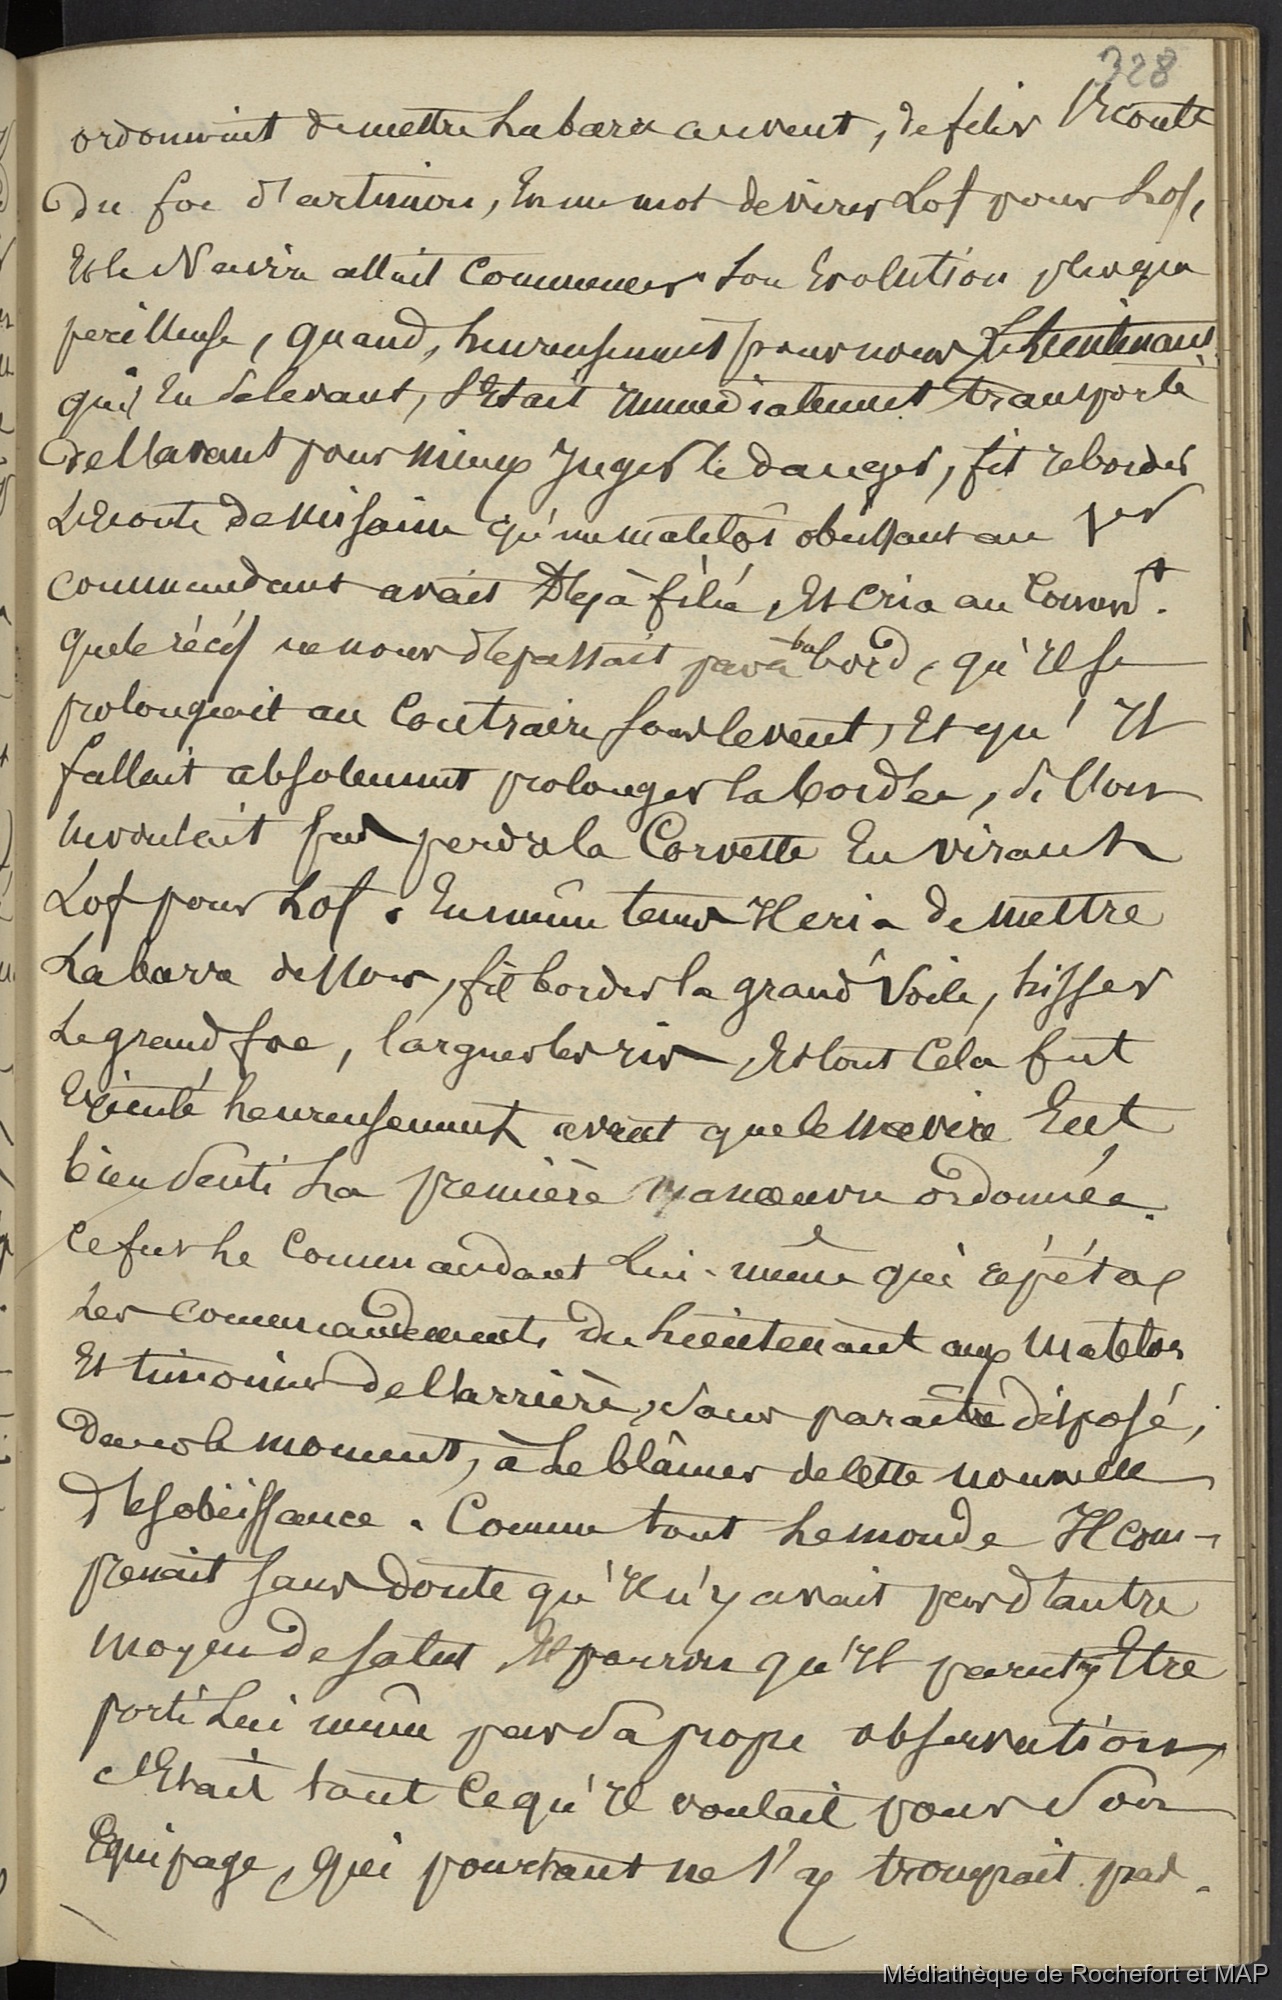 328
ordonnaint de mettre La barre au vent, de filer l'Ecoute
du foc d'artimon, En un mot de virer Lof pour Lof,
Et le Navire allait Commencer Son Evolution plus que
perilleuse, quand, heureusement pour nous Le Lieutenant
qui En Se levant, S'Etait Immediatement transporté
de l'avant pour mieux Juger le danger, fit reborder
L'Ecoute de misaine qu'un matelôt obeissant au 1er
commandant avait Dejà filée, Et cria au Command.t
que le récif ne nous depassait pas à babord, qu'Il se
prolongeait au Contraire sous le vent, Et qu'Il
fallait absolument prolonger la bordée, Si l'on
ne voulait pas perdre la Corvette En virant
Lof pour Lof. En même tems Il cria de mettre
La barre dessous, fit border la grand Voile, hisser
Le grand foc, larguer les ris, Et tout Cela fut
Exécuté heureusement avant que le navire Eut
bien Senti La première manœuvre ordonnée.
Ce fut Le Commandant Lui-même qui répéta
Les commandements du Lieutenant aux Matelos
Et timonier de l'arrière, Sans paraître disposé,
dans le moment, à Le blâmer de Cette nouvelle
d'Esobéissance. Comme tout Le monde Il com-
prenait sans doute qu'Il n'y avait pas d'autre
moyen de salut Et pourvu qu'Il parut y Etre
porté Lui même par Sa propre observation,
c'Etait tout Ce qu'Il voulait pour Son
Equipage, qui pourtant ne S'y trompait pas.
Médiathèque de Rochefort et MAP